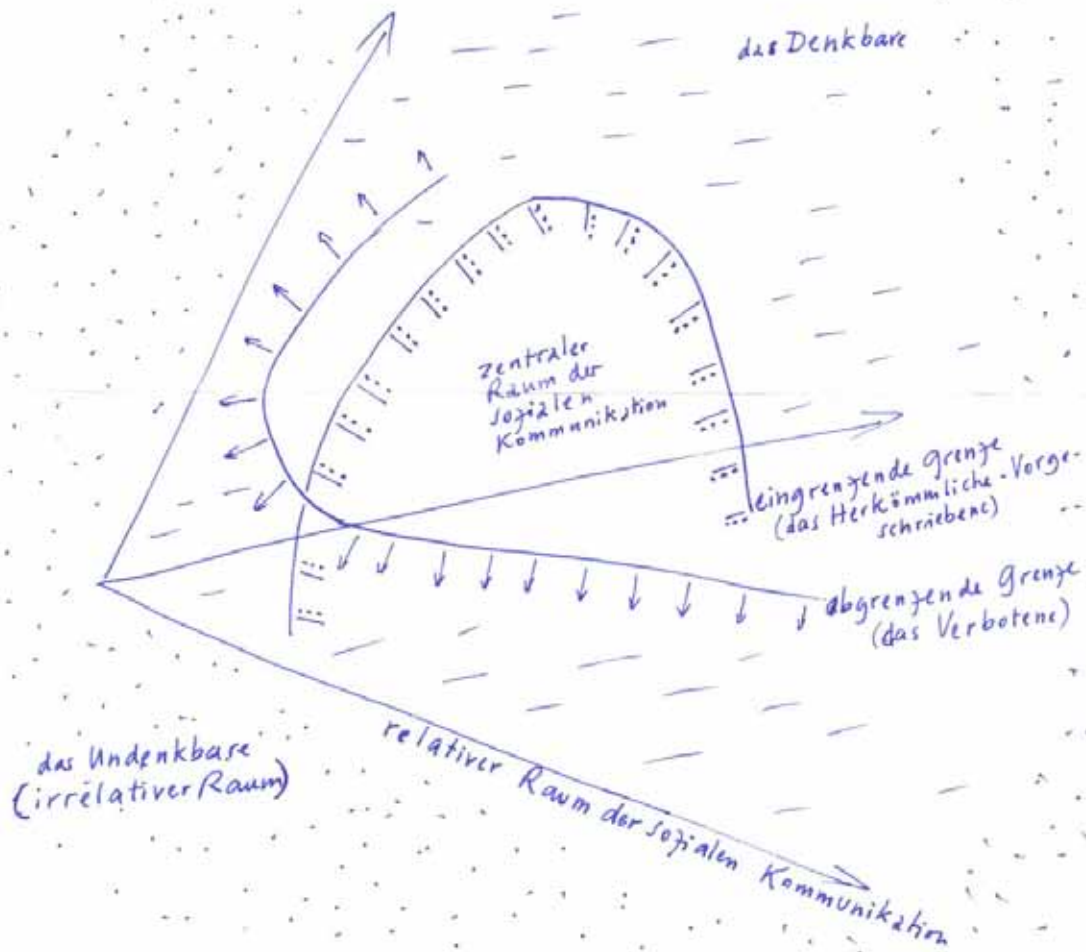 das Denkbare
zentraler
Raum der
sozialen
Kommunikation
eingrenzende Grenze
(das Herkömmliche-Vorge-
schriebene)
abgrenzende Grenze
(das Verbotene)
das Undenkbare
(irrelativer Raum)
relativer Raum der sozialen Kommunikation